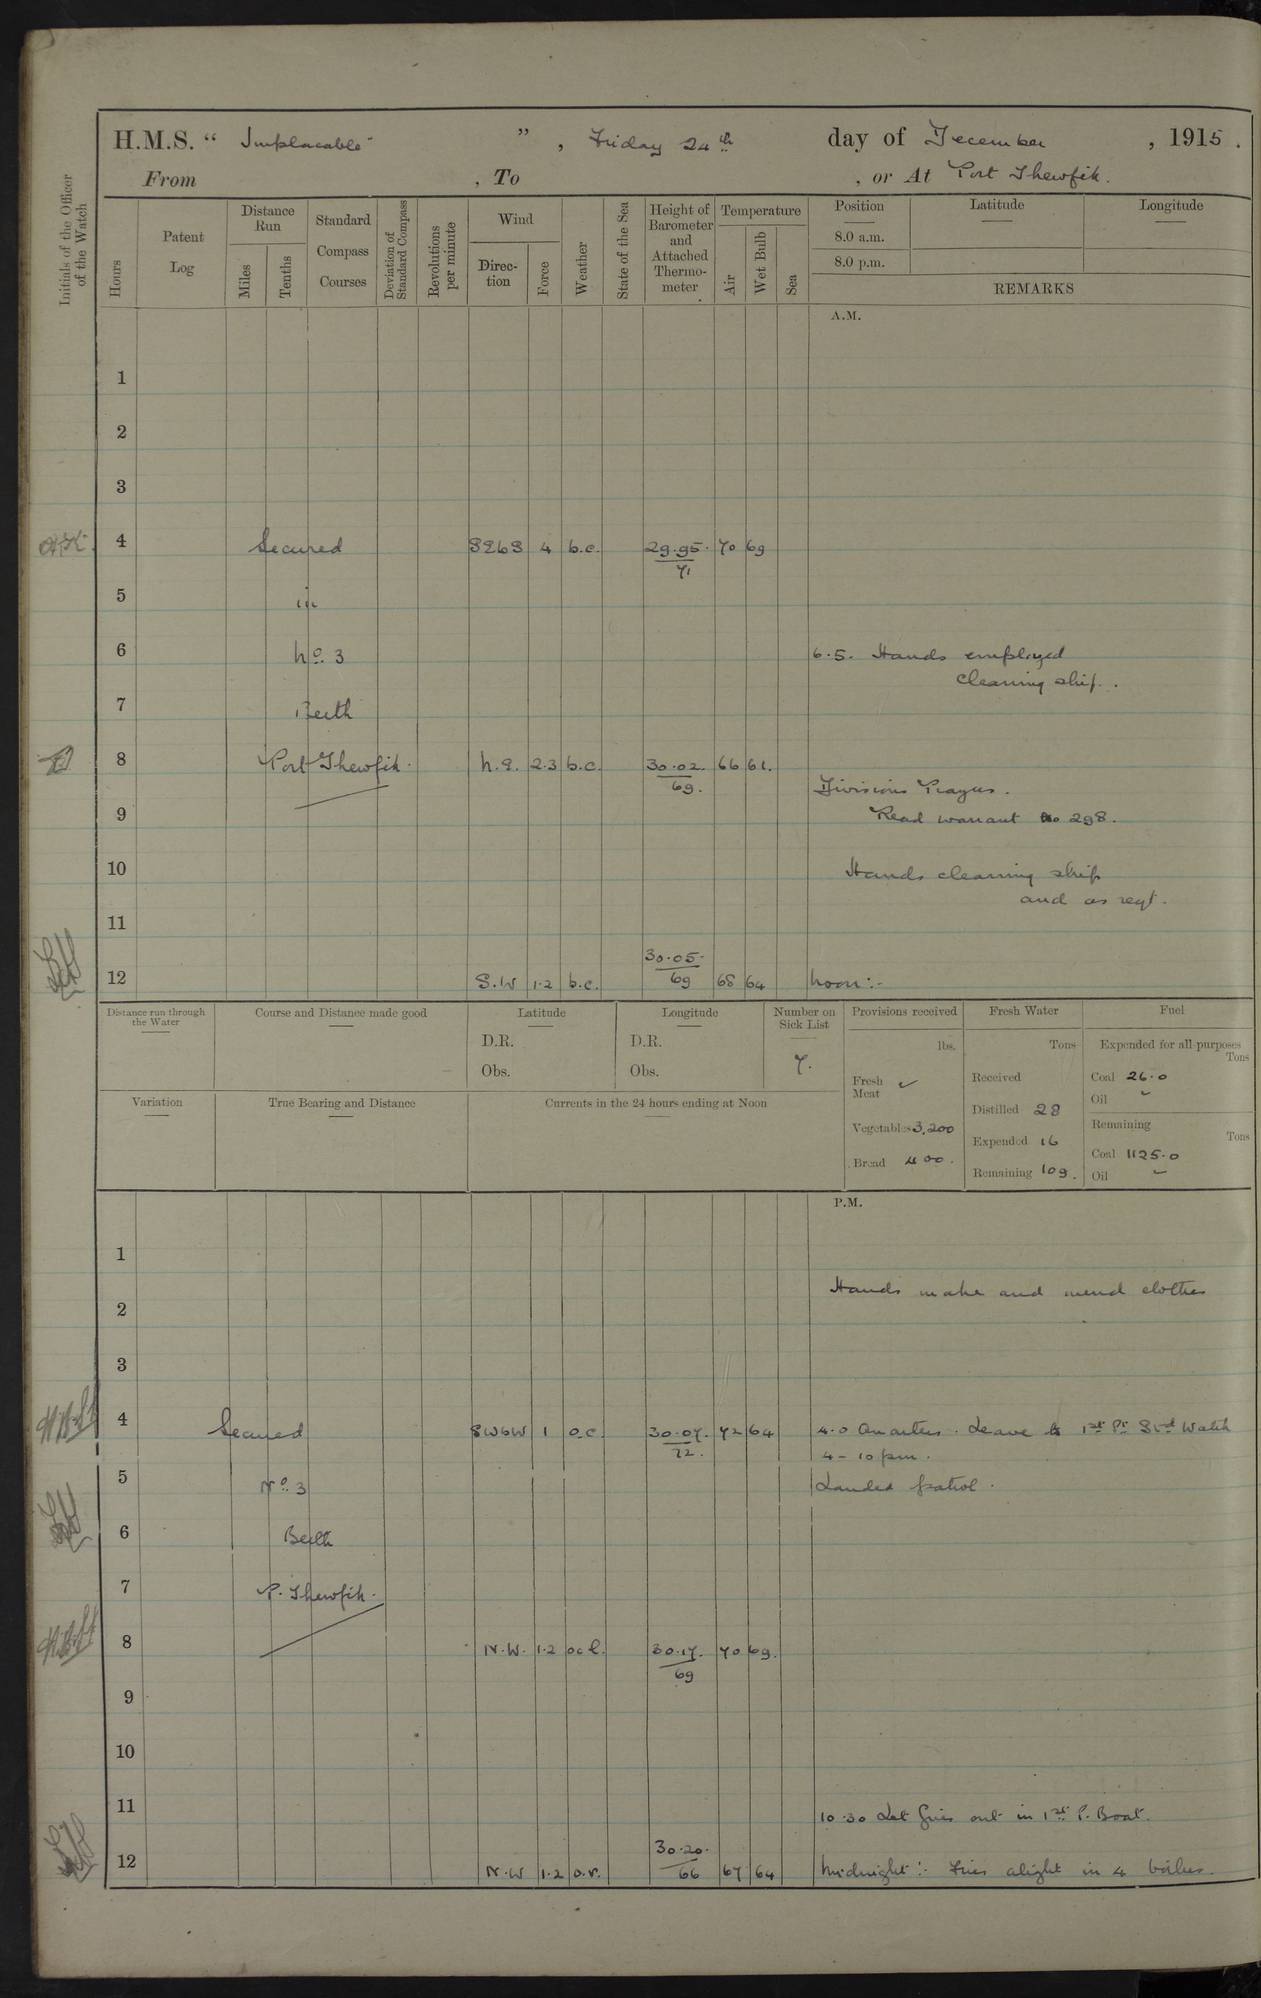 H.M.S. " Implacable ", Friday 24th day of December, 1915.
From , To , or At Port Thewfik.
Initials of the Officer of the Watch
Hours
Patent Log
Distance Run
Miles
Tenths
Standard Compass Courses
Deviation of Standard Compass
Revolutions per minute
Wind
Direction
Force
Weather
State of the Sea
Height of Barometer and Attached Thermometer
Temperature
Air
Wet Bulb
Sea
Position
8.0 a.m.
8.0 p.m.
Latitude
Longitude
REMARKS
A.M.
1
2
3
4 Secured SEbS 4 b.c. 29.95. 70 69
71
5 in
6 No 3 6.5. Hands employed
cleaning ship.
7 Berth
8 Port Thewfik. N.E. 2.3 b.c. 30.02. 66 61.
69.
Divisions Prayers.
9 Read warrant No 298.
10 Hands cleaning ship
and as reqt.
11
30.05.
12 S.W 1.2 b.c. 69 68 64 Noon:-
Distance run through the Water
Course and Distance made good
Latitude
D.R.
Obs.
Longitude
D.R.
Obs.
Number on Sick List
7.
Variation
True Bearing and Distance
Currents in the 24 hours ending at Noon
Provisions received
lbs.
Fresh Meat
Vegetables 3,200
Bread 400.
Fresh Water
Tons
Received
Distilled 28
Expended 16
Remaining 109.
Fuel
Expended for all purposes
Tons
Coal 26.0
Oil
Remaining
Tons
Coal 1125.0
Oil
P.M.
1
Hands make and mend clothes
2
3
4 Secured SWbW 1 o.c. 30.07. 72 64 4.0 Quarters. Leave to 1st Pt Stbd Watch
72. 4-10 pm.
5 No 3 Landed patrol.
6 Berth
7 P. Thewfik.
8 N.W. 1.2 o.c.l. 30.17. 70 69.
69
9
10
11
10.30 Let fires out in 1st P. Boat.
30.20.
12 N.W 1.2 o.r. 66 67 64 Midnight:- Fires alight in 4 boilers.